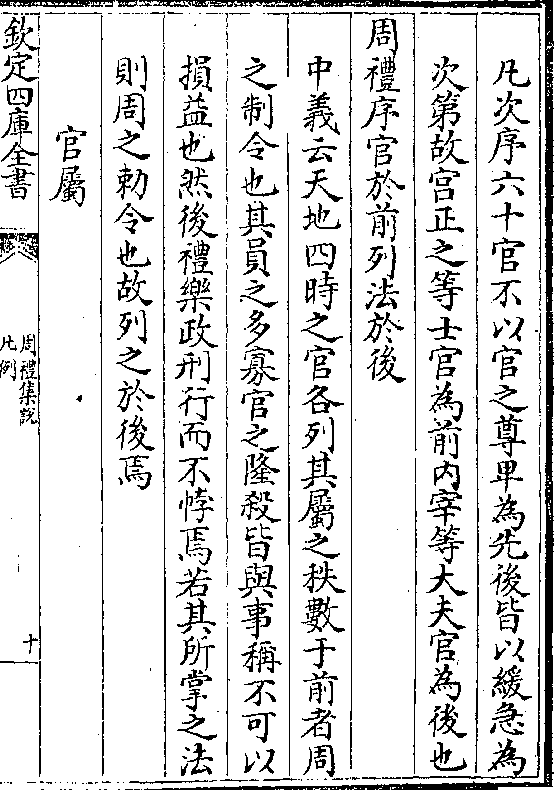 凡次序六十官不以官之尊卑為先後皆以緩急為
次第故宫正之等士官為前内宰等大夫官為後也
周禮序官於前列法於後
中義云天地四時之官各列其屬之秩數于前者周
之制令也其員之多寡官之隆殺皆與事稱不可以
損益也然後禮樂政刑行而不悖焉若其所掌之法
則周之勅令也故列之於後焉
官屬
欽定四庫全書
周禮集說
凡例
十